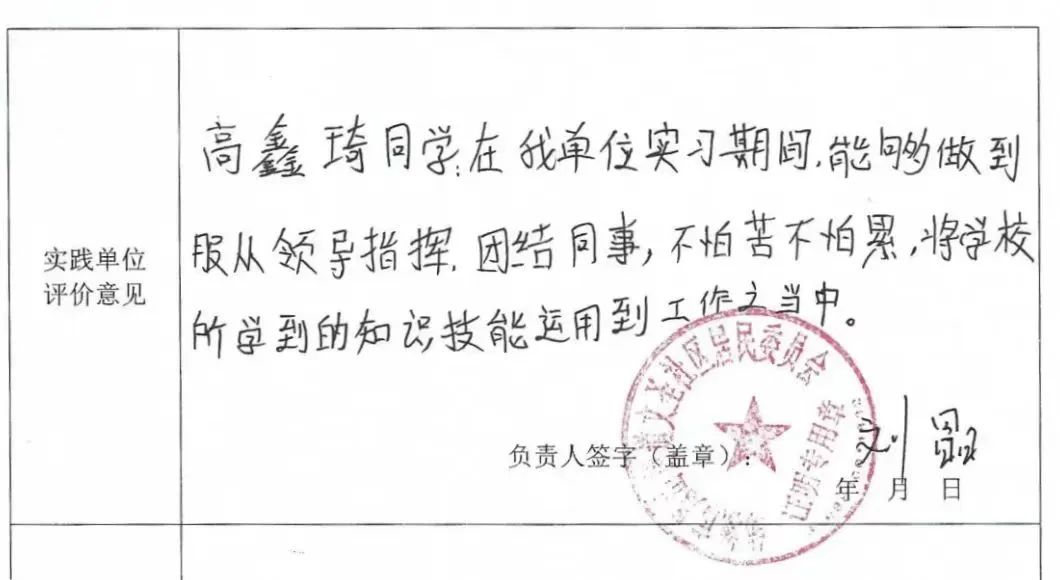 实践单位
评价意见
高鑫琦同学,在我单位实习期间,能够做到
服从领导指挥,团结同事,不怕苦不怕累,将学校
所学到的知识技能运用到工作之当中。
负责人签字（盖章）：
刘
年 月 日
文圣社区居民委员会
证明专用章